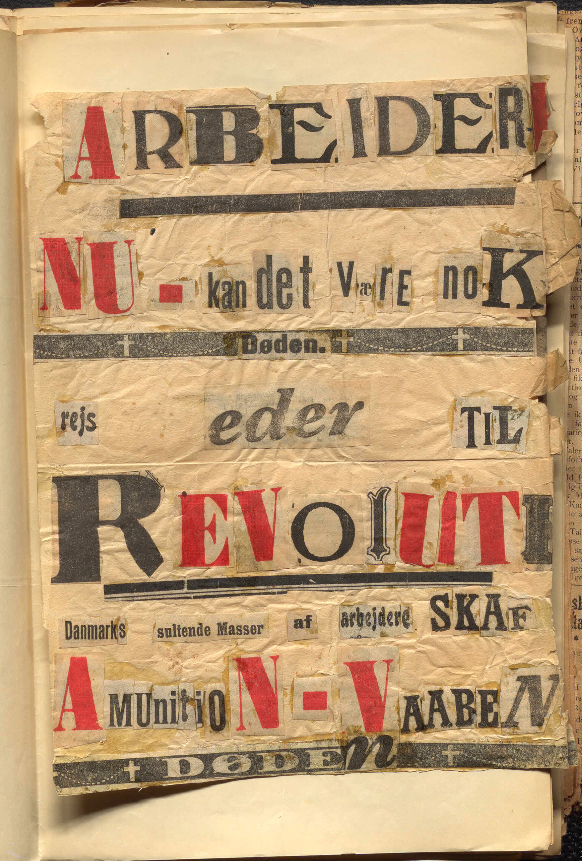 ARBEIDER
NU - kan det VærE noK
Døden.
rejs eder TiL
REVolUTI
Danmarks sultende Masser af arbejdere SKAF
AMUnitiON-VAABEN
DØDEn